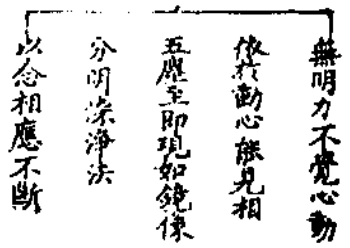 無明力不覺心動
依於動心能見相
五塵至即現如鏡像
分明染淨法
以念相應不斷